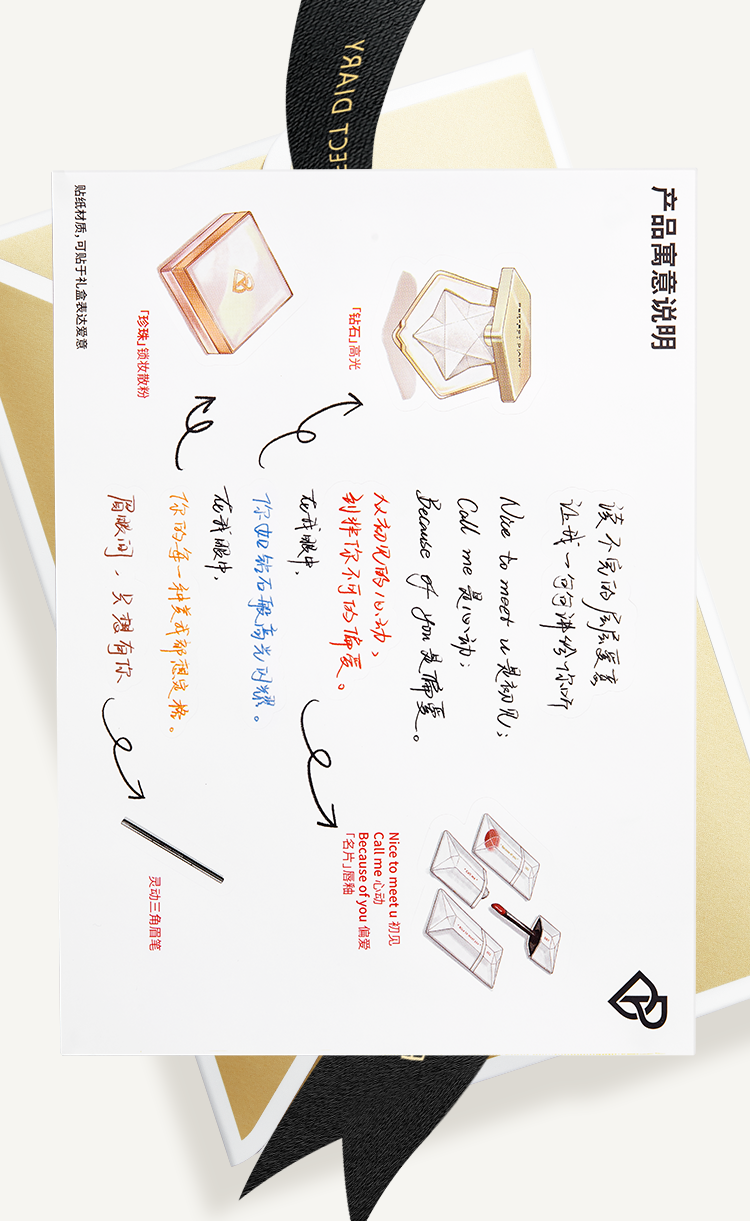 ECT DIARY
产品寓意说明
PERFECT DIARY
「钻石」高光
「珍珠」锁妆散粉
贴纸材质，可贴于礼盒表达爱意
读不完的层层爱意
让我一句句讲给你听
Nice to meet u 是初见；
Call me 是心动；
Because of you 是偏爱。
从初见的心动，
到非你不可的偏爱。
在我眼中，
你如钻石般高光闪耀。
在我眼中，
你的每一种美我都想定格。
眉眼间，只想有你
Nice to meet u 初见
Call me 心动
Because of you 偏爱
「名片」唇釉
灵动三角眉笔